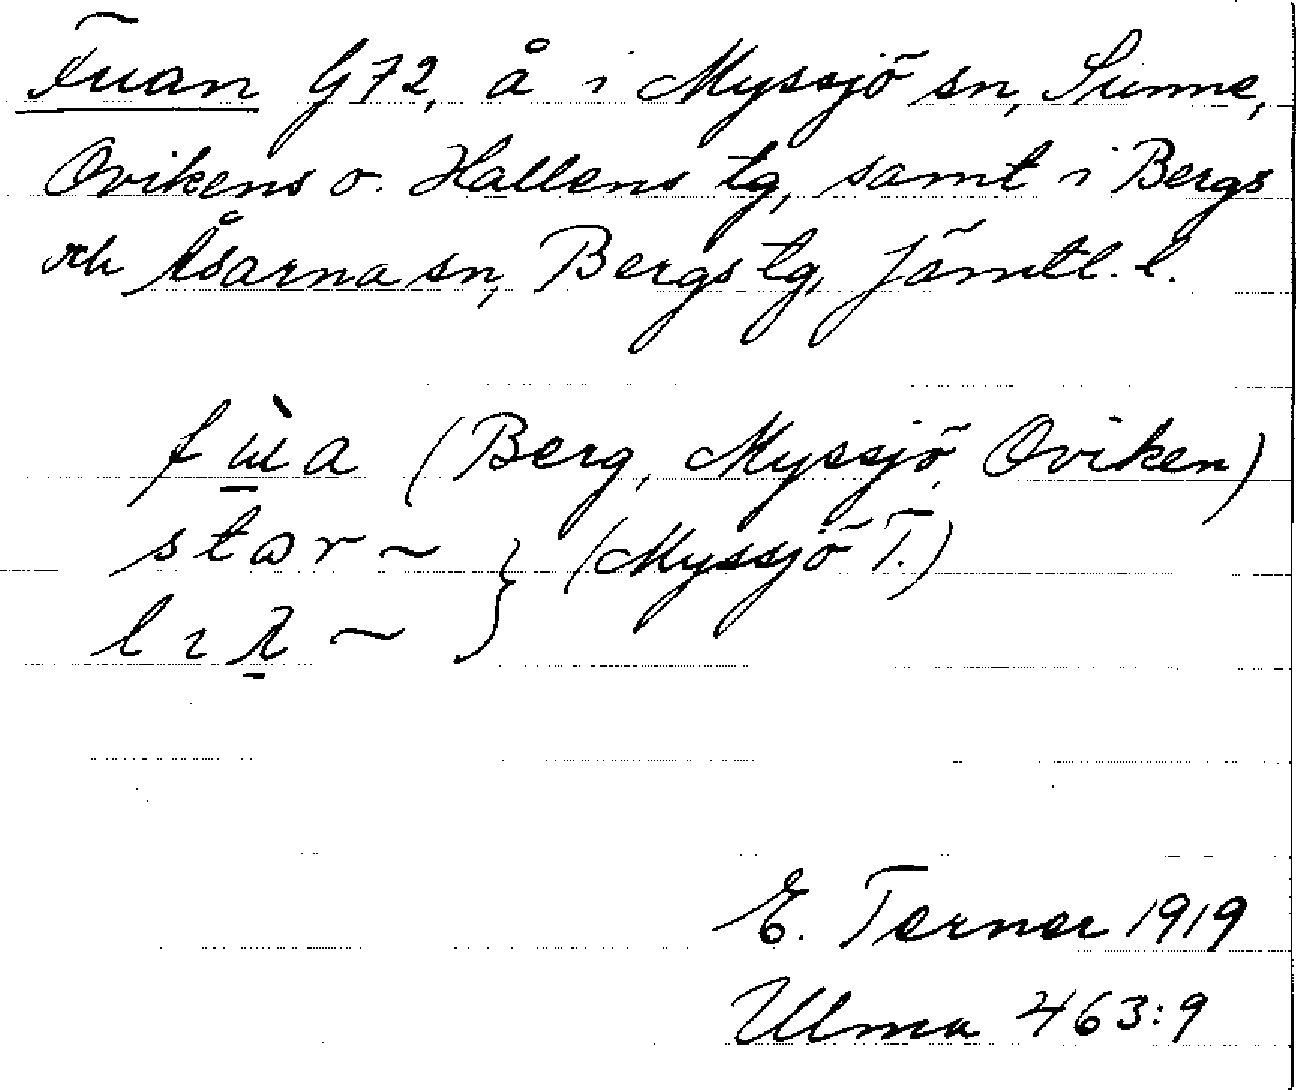 Fuan G72, å i Myssjö sn, Sunne,
Ovikens o. Hallens tg, samt i Bergs
och Åsarna sn, Bergs tg, Jämtl. l.
fɯ̀a (Berg, Myssjö, Oviken)
star ~ } (Myssjö T.)
E. Terner 1919
Ulma 463:9